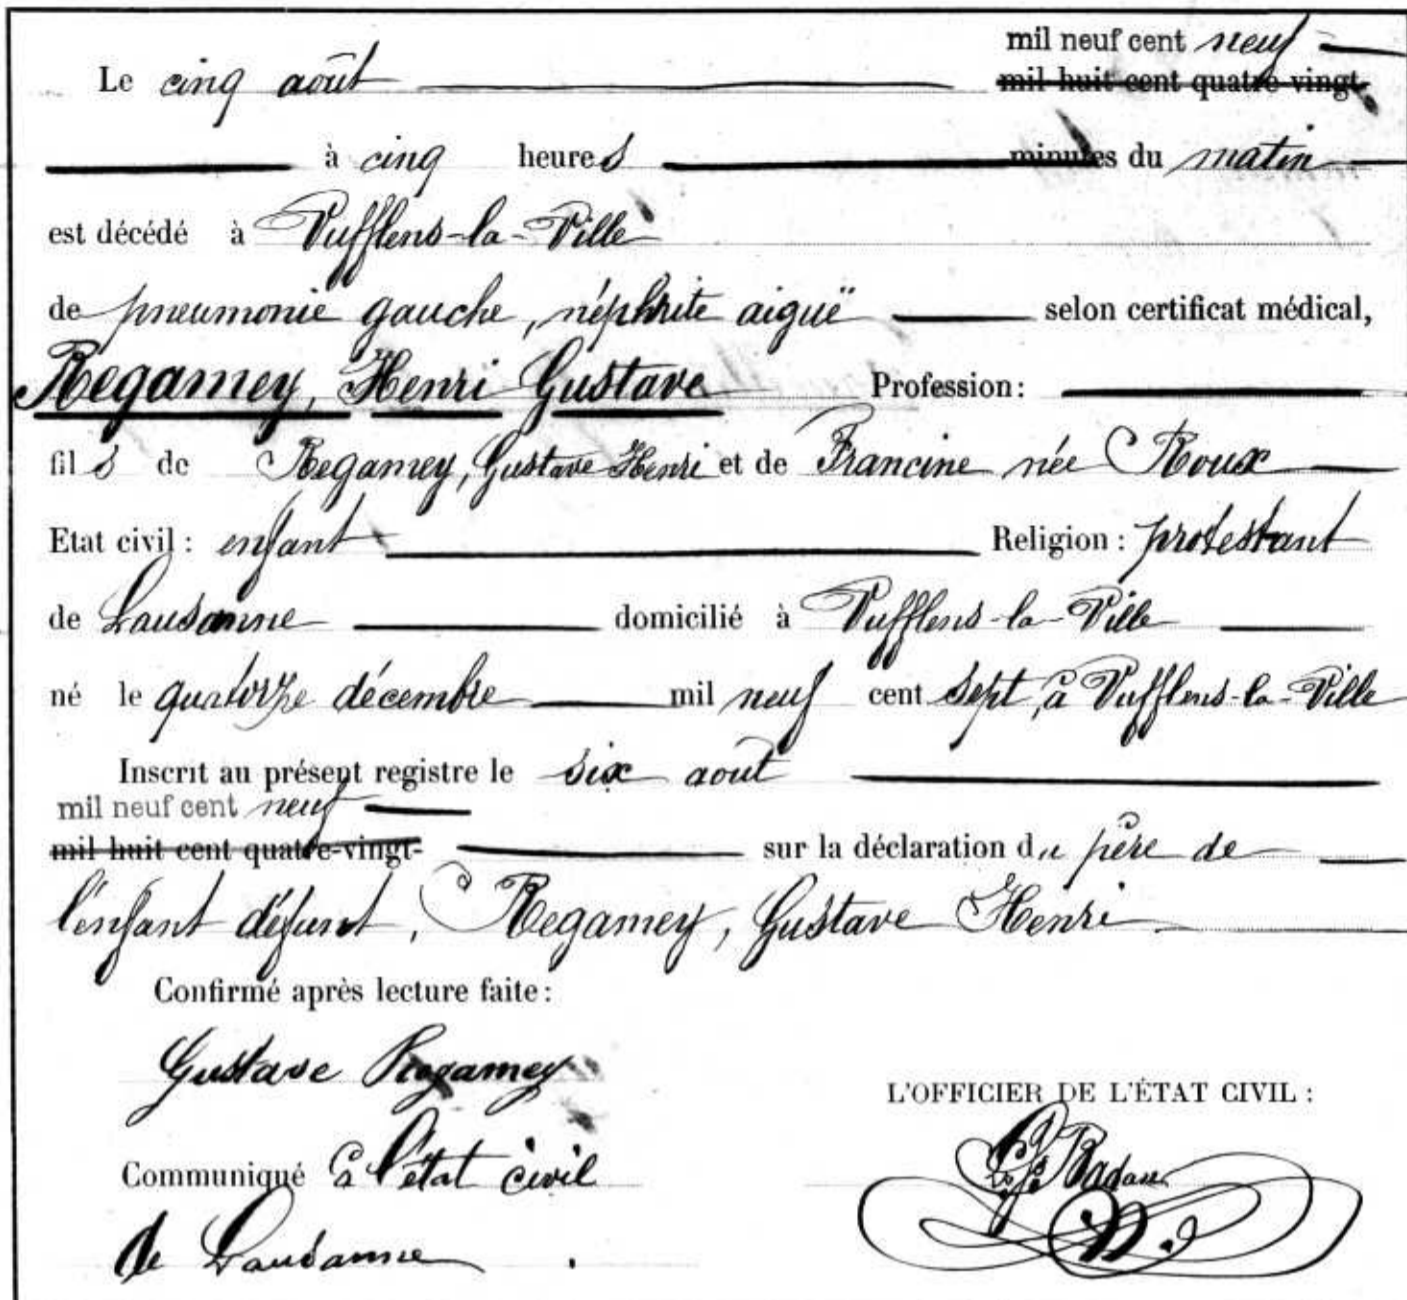 mil neuf cent neuf
Le cinq août mil huit cent quatre-vingt-
à cinq heures minutes du matin
est décédé à Vufflens-la-Ville
de pneumonie gauche, néphrite aiguë selon certificat médical,
Regamey, Henri Gustave Profession:
fils de Regamey, Gustave Henri et de Francine née Roux
Etat civil: enfant Religion: protestant
de Lausanne domicilié à Vufflens-la-Ville
né le quatorze décembre mil neuf cent sept, à Vufflens-la-Ville
Inscrit au présent registre le six août
mil neuf cent neuf
mil huit cent quatre-vingt- sur la déclaration du père de
l'enfant défunt, Regamey, Gustave Henri
Confirmé après lecture faite:
Gustave Regamey
L'OFFICIER DE L'ÉTAT CIVIL:
Communiqué à l'état civil
Badan
de Lausanne.